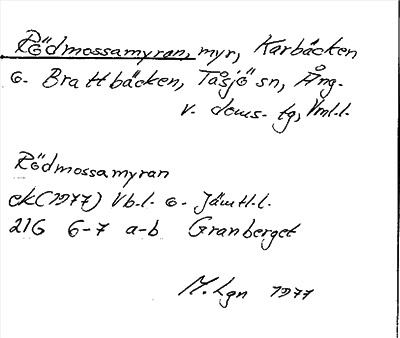 Rödmossamyran, myr, Karbäcken
o. Brattbäcken, Tåsjö sn, Ång.
v. dems. tg, Vml.l.
Rödmossamyran
ek (1977) Vb.l. o. Jämtl.l.
21G 6-7 a-b Granberget
M.Lgn 1977